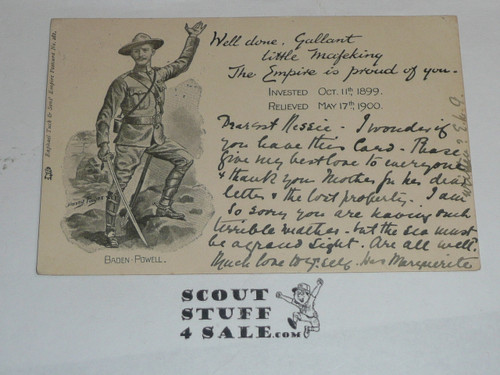 Raphael Tuck & Sons' Empire Postcard No.
Well done. Gallant
little Mafeking
The Empire is proud of you.
INVESTED OCT. 11th, 1899.
RELIEVED MAY 17th, 1900.
Dearest Nessie. I wonder if
you have this Card. Please
give my best love to everyone
& thank your Mother for her dear
letter & the lost property. I am
So sorry you are having such
terrible weather - but the sea must
be a grand Sight. Are all well?
Much love to yr. self. Marguerite
Harry Payne
BADEN-POWELL.
SCOUT
STUFF
4 SALE.COM